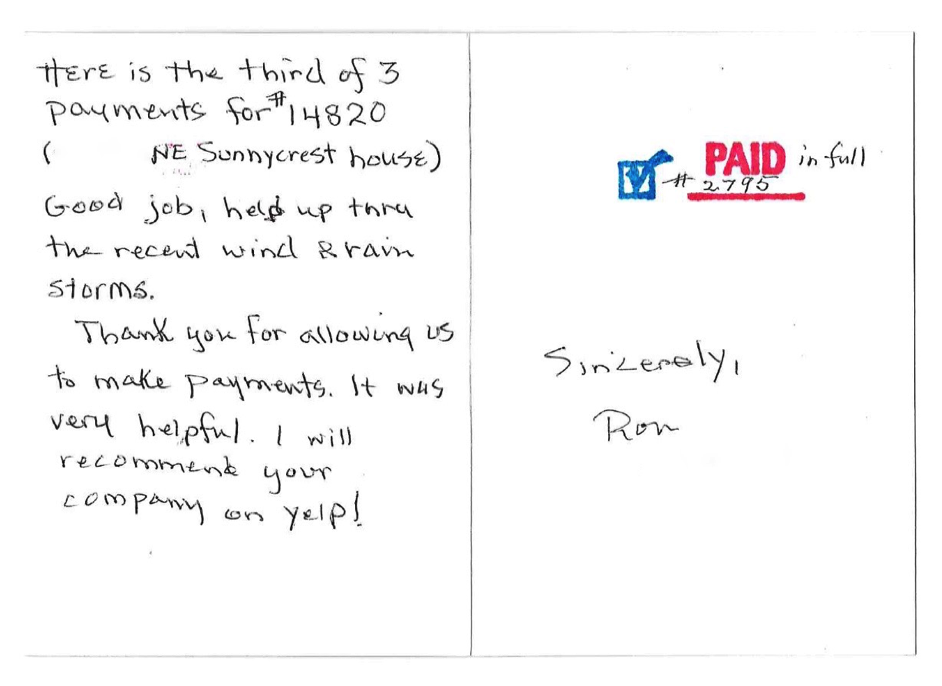 HERE is the third of 3
payments for #14820
( NE Sunnycrest house)
Good job, held up thru
the recent wind & rain
storms.
Thank you for allowing us
to make payments. It was
very helpful. I will
recommend your
company on yelp!
PAID in full
# 2795
Sincerely,
Ron